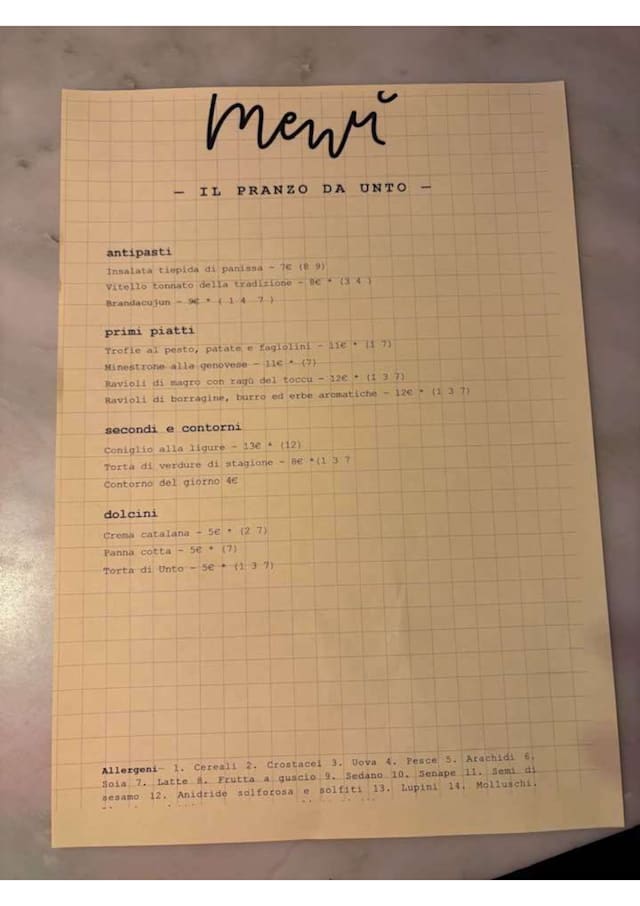 menù
— IL PRANZO DA UNTO —
antipasti
Insalata tiepida di panissa - 7€ (8 9)
Vitello tonnato della tradizione - 8€ * (3 4 )
Brandacujun - 9€ * ( 1 4 7 )
primi piatti
Trofie al pesto, patate e fagiolini - 11€ * (1 7)
Minestrone alla genovese - 11€ * (7)
Ravioli di magro con ragù del toccu - 12€ * (1 3 7)
Ravioli di borragine, burro ed erbe aromatiche - 12€ * (1 3 7)
secondi e contorni
Coniglio alla ligure - 13€ * (12)
Torta di verdure di stagione - 8€ *(1 3 7
Contorno del giorno 4€
dolcini
Crema catalana - 5€ * (2 7)
Panna cotta - 5€ * (7)
Torta di Unto - 5€ * (1 3 7)
Allergeni- 1. Cereali 2. Crostacei 3. Uova 4. Pesce 5. Arachidi 6.
Soia 7. Latte 8. Frutta a guscio 9. Sedano 10. Senape 11. Semi di
sesamo 12. Anidride solforosa e solfiti 13. Lupini 14. Molluschi.